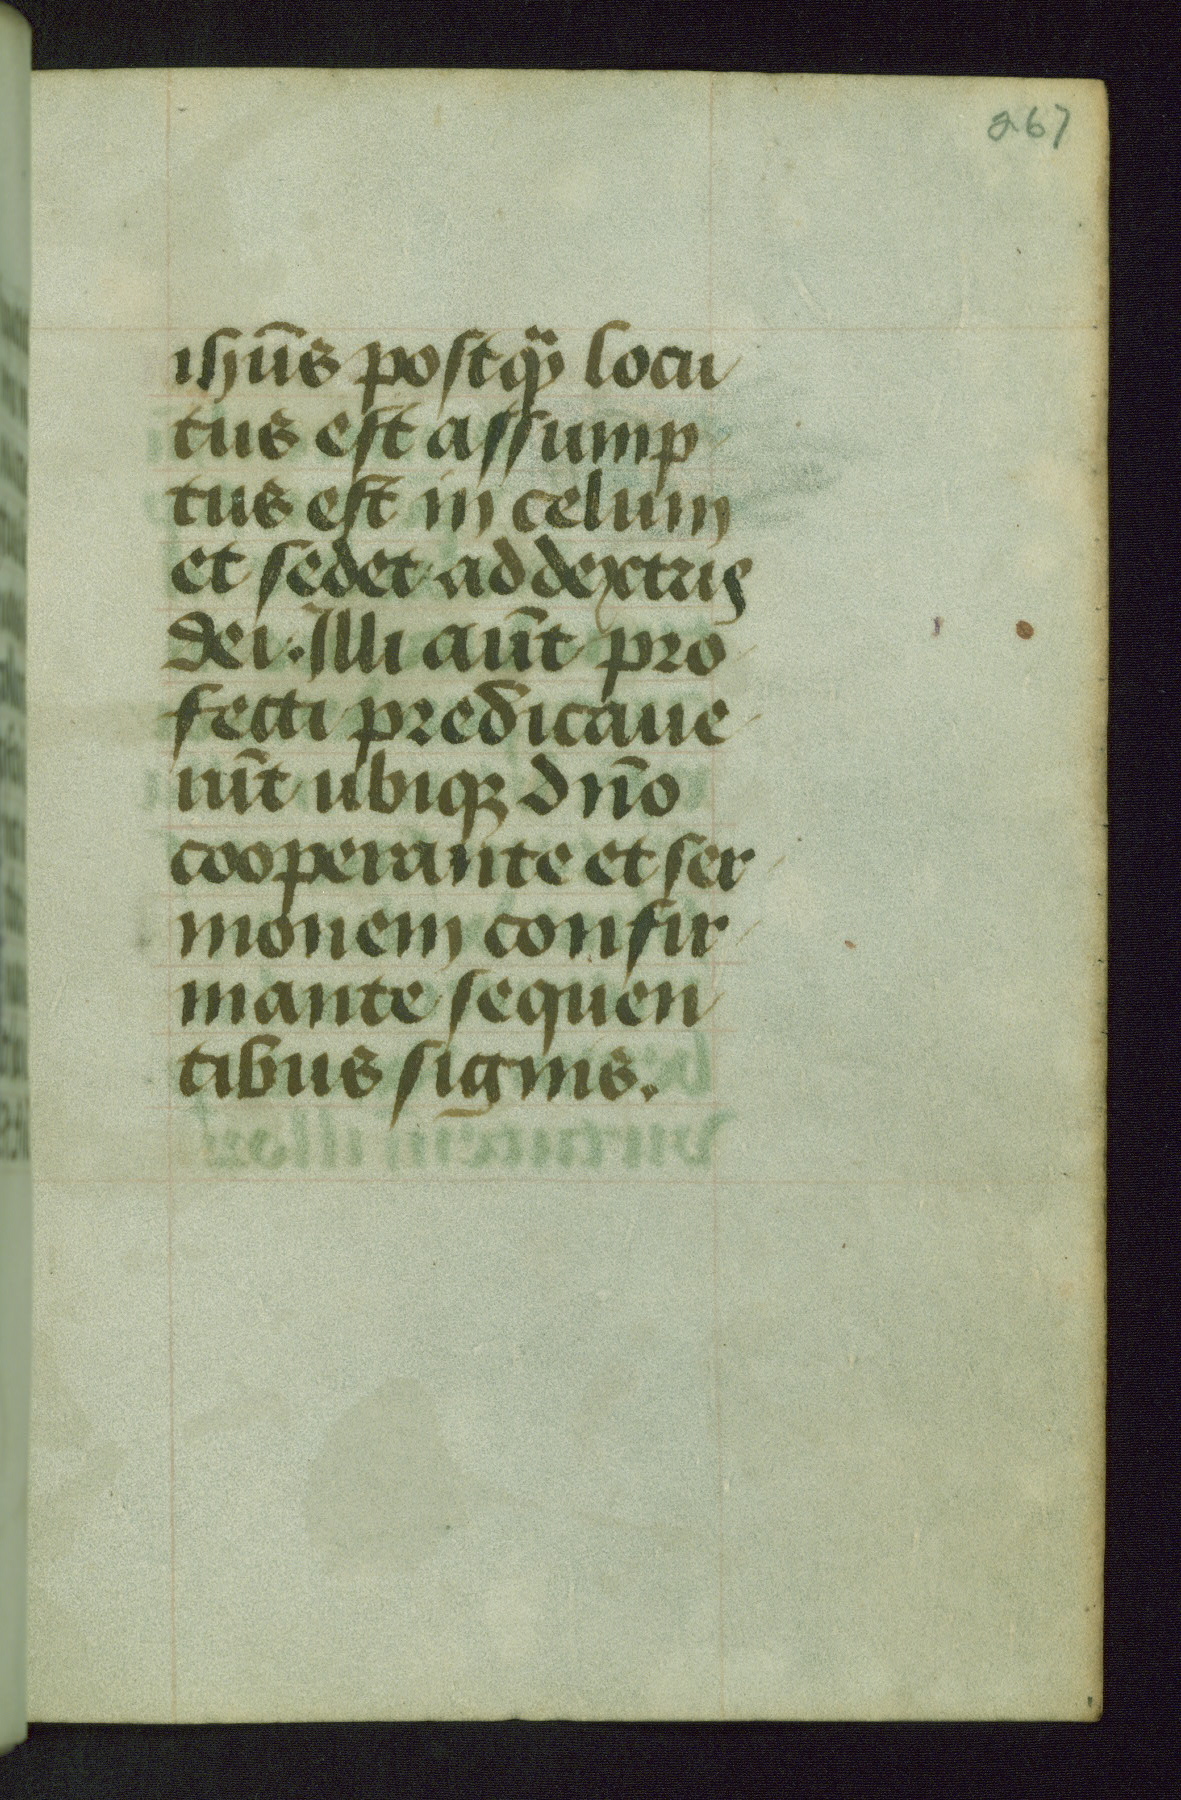 267
ihūs postq̄ locu
tus est assump
tus est in celum
et sedet ad dextris
dei. Illi aūt pro
fecti predicaue
rūt ubiqꝫ dn̄o
cooperante et ser
monem confir
mante sequen
tibus signis.